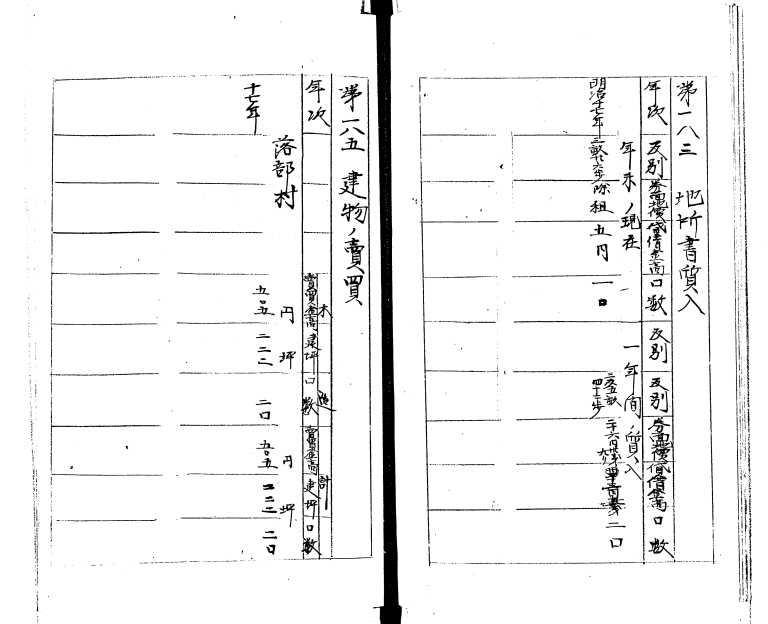 第一八三 地所書質入
年次 反別 券面積 貸借金高 口数 反別 反別 券面積 貸借金高 口数
年末ノ現在 一年間ノ質入
明治十七年 三畝廿六歩 除租 五円 一口
二口
第一八五 建物ノ賣買
年次 賣買金高 建坪 口数 賣買金高 建坪 口数
木造 計
落部村 円 坪 円 坪
十七年 五〇五 二二二 二口 五〇五 二二二 二口